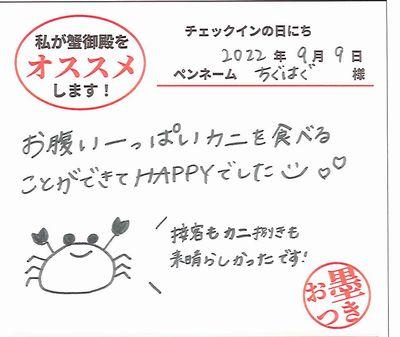 私が蟹御殿を
オススメ
します！
チェックインの日にち
2022年9月9日
ペンネーム ちぐはぐ 様
お腹いーっぱいカニを食べる
ことができてHAPPYでした
接客もカニ捌きも
来晴らしかったです!
墨
おつき